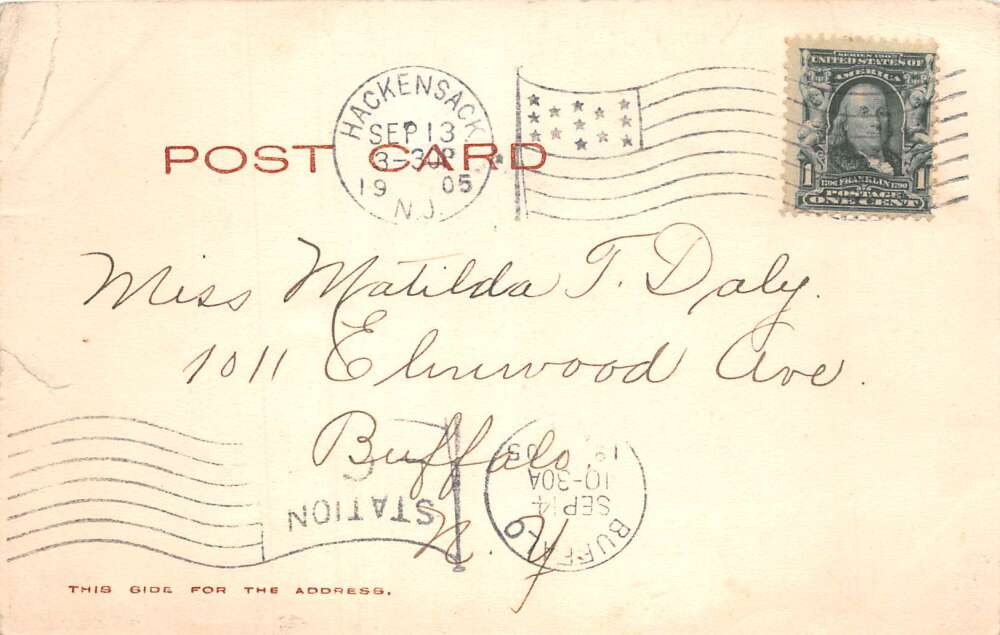 SERIES 1902
UNITED STATES OF
AMERICA
1 1
1706 FRANKLIN 1790
POSTAGE
ONE CENT
HACKENSACK
SEP 13
3-30P
19 05
N.J.
POST CARD
Miss Matilda T. Daly.
1011 Elmwood Ave.
Buffalo,
N. Y
STATION
BUFFALO
SEP 14
10-30A
19 05
THIS SIDE FOR THE ADDRESS.